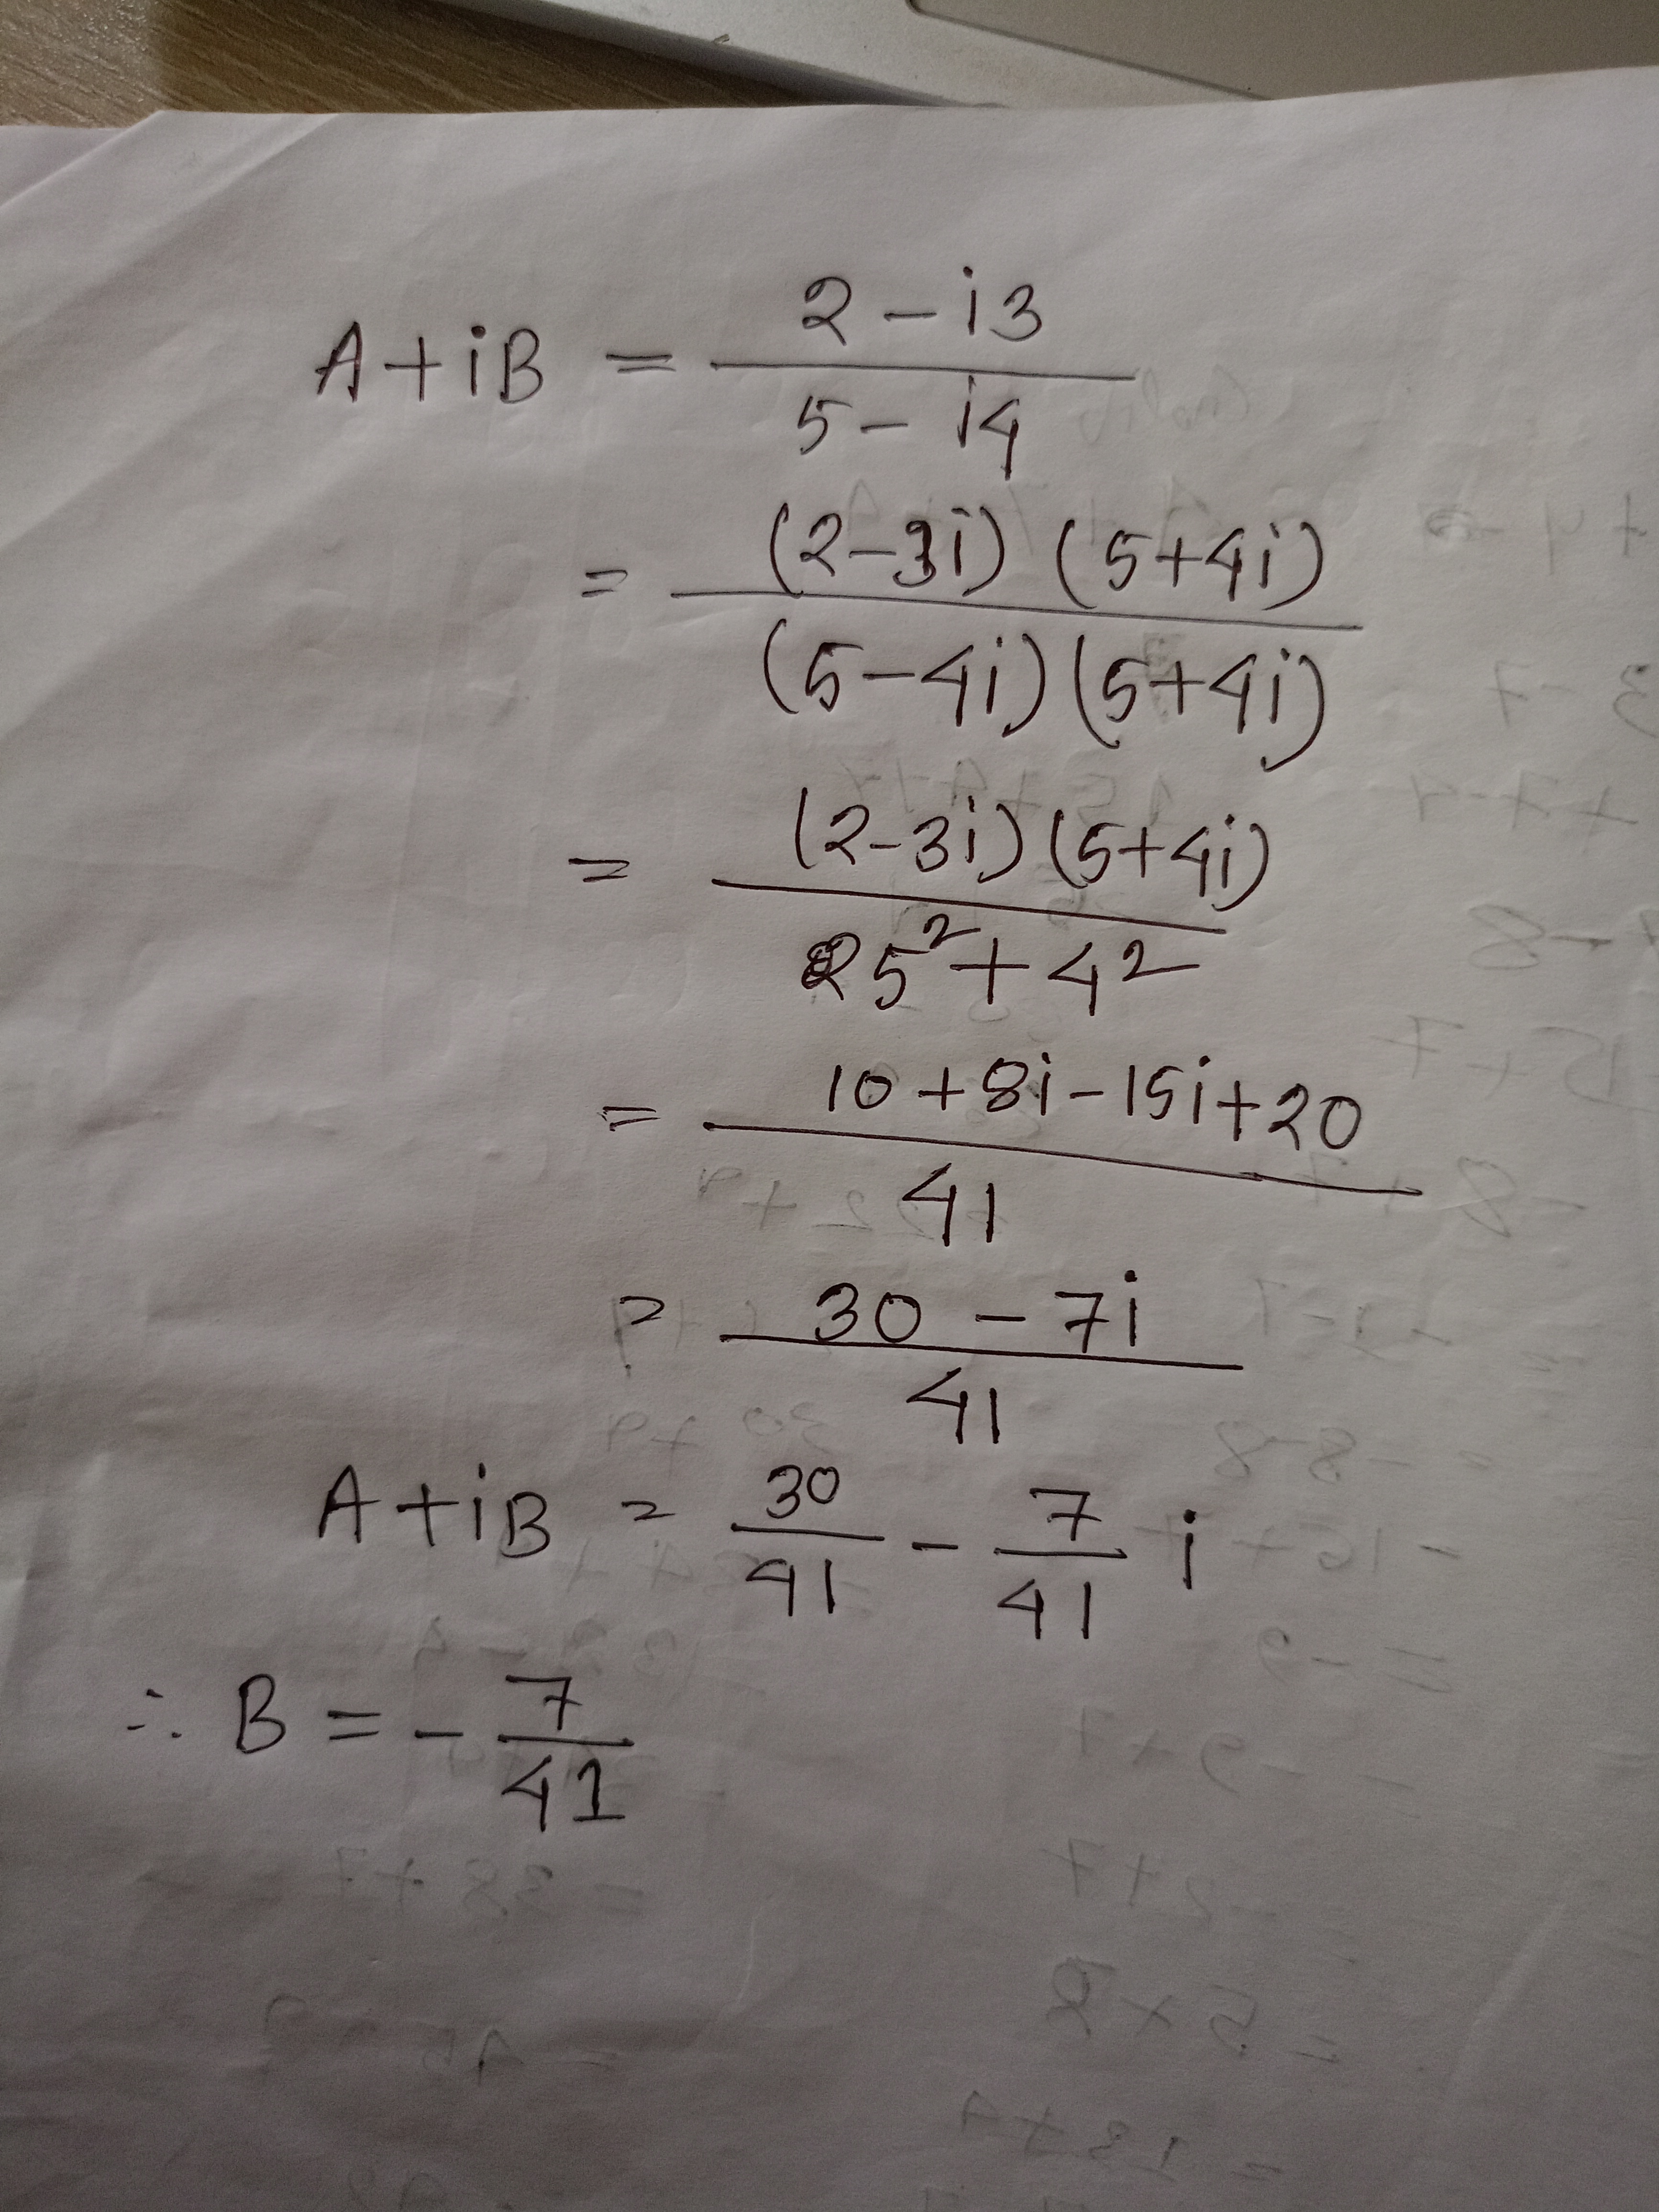 A+iB = (2-i3)/(5-i4)
= ((2-3i) (5+4i))/((5-4i)(5+4i))
= ((2-3i)(5+4i))/(25²+4²)
= (10+8i-15i+20)/41
= (30-7i)/41
A+iB = 30/41 - 7/41 i
∴ B = -7/41